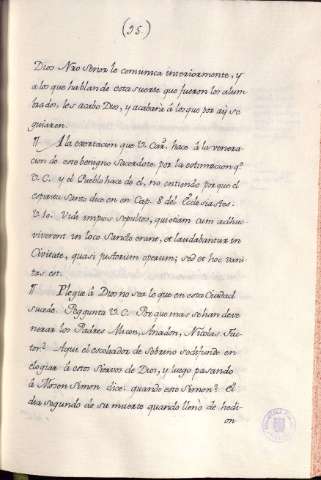 (95.)
Dios Nro Señor le comunica interiormente, y
a los que hablan de esta suerte que fueron los alum-
brados, les acabo Dios, y acabaría á los que por aý se
guiaren.
¶ A la exortacion que V. Car. hace á la venera
cion de este benigno Sacerdote por la estimacion q.e
V. C. y el Pueblo hace de el, no entiendo por que el
espiritu Santo dice en en Cap. 8 del Eclesiastes
V. 10. Vidi impios sepultos, qui etiam cum adhuc
viverent in loco Sancto erant, et laudabantur in
Civitate, quasi justorum operum; sed et hoc vani
tas est.
¶ Plegue á Dios no sea lo que en esta Ciudad
sucede. Peggunta V. C. Por que mas se han de ve
nerar los Padres Macon, Anadon, Nicolas Fac-
tor? Aqui el escoliador de Sobrino
elogiar á estos Siervos de Dios, y luego pasando
á Mosen Simon dice: quando este Simon? El
dia segundo de su muerte quando lleno de hedi-
on